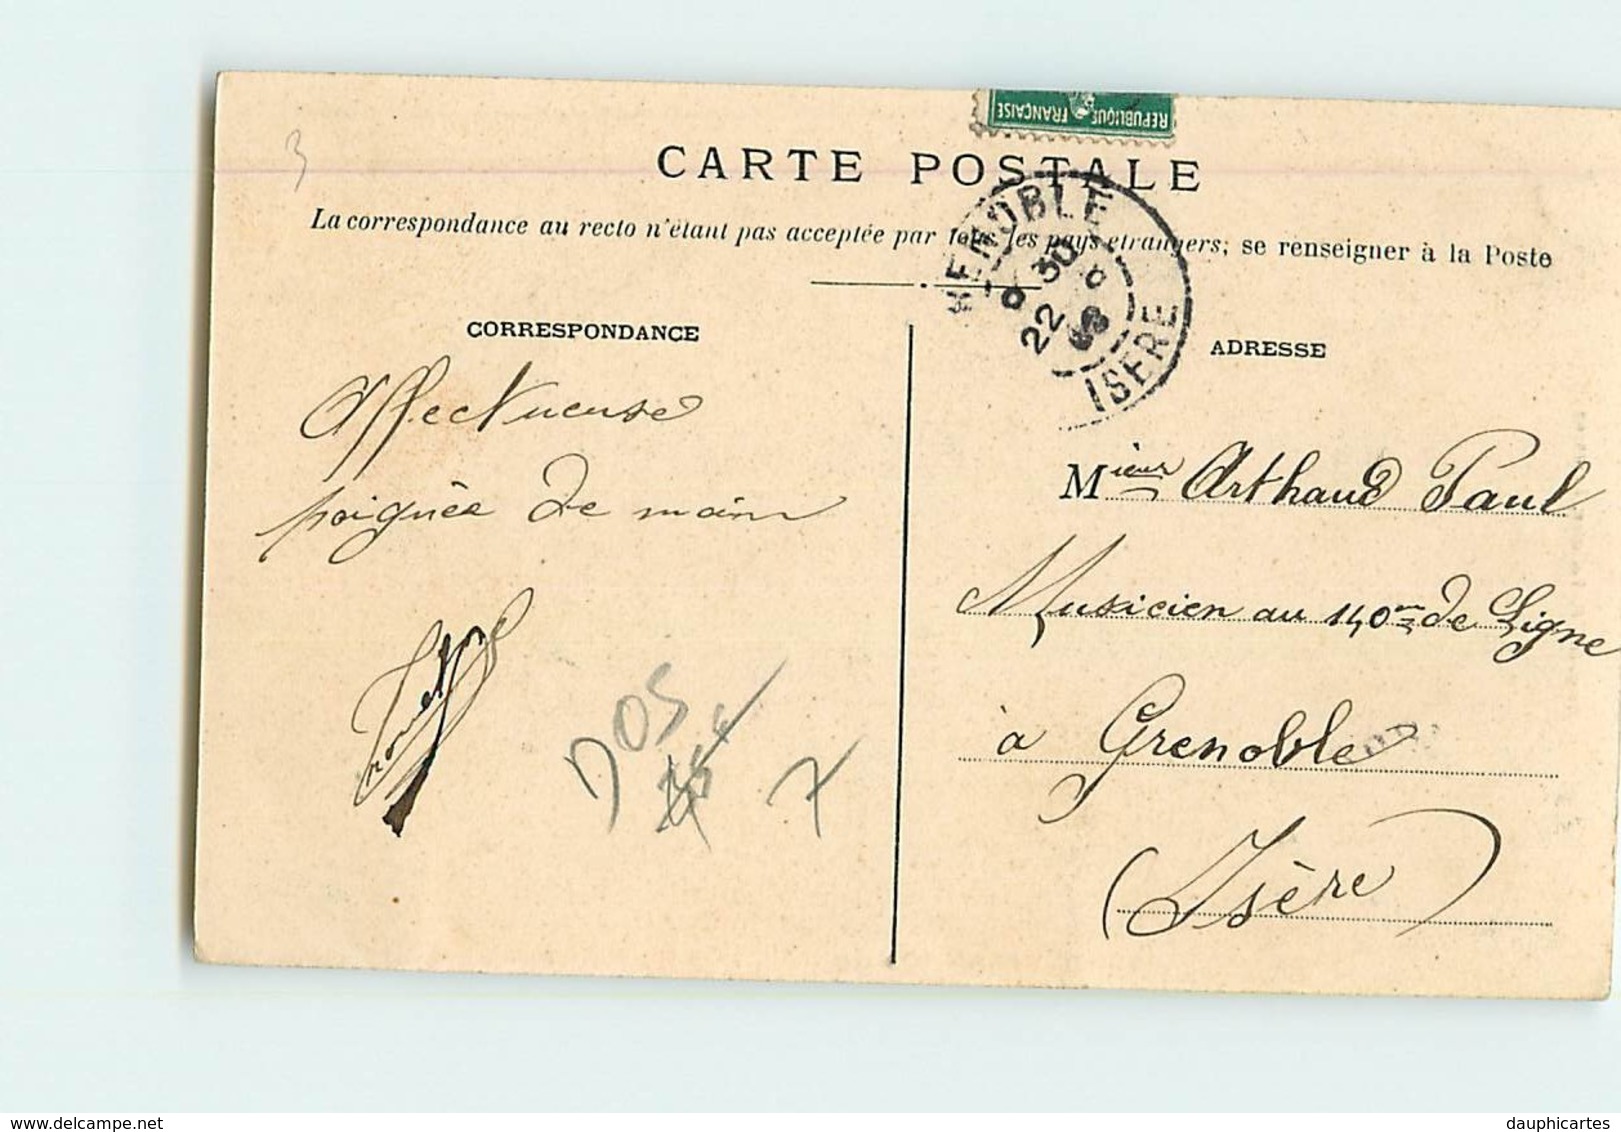 3
REPUBLIQUE FRANÇAISE
CARTE POSTALE
La correspondance au recto n'étant pas acceptée par tous les pays étrangers; se renseigner à la Poste
GRENOBLE
30
22
ISERE
CORRESPONDANCE
Affectueuse
poignée de main
DOS
7
ADRESSE
Mieur Arthaud Paul
Musicien au 140me de Ligne
à Grenoble
(Isère)
dauphicartes